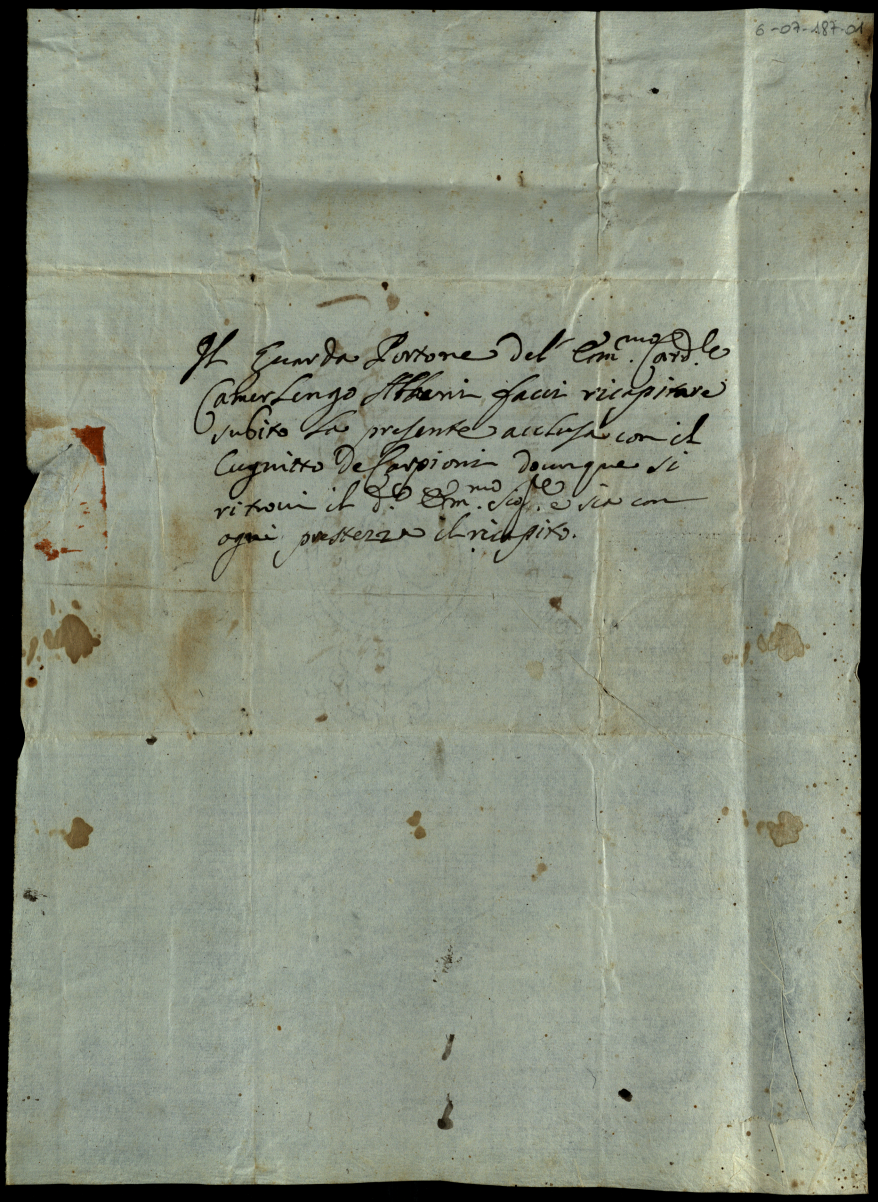 6-07-487-01
Il Guarda Portone del' Em.mo Card.le
Camerlengo Albani facci ricapitare
subito la presente acclusa con il
de Scarpioni dounque si
ritroui il d.o Em.mo Sig.re e sia con
ogni prestezza il ricapito.